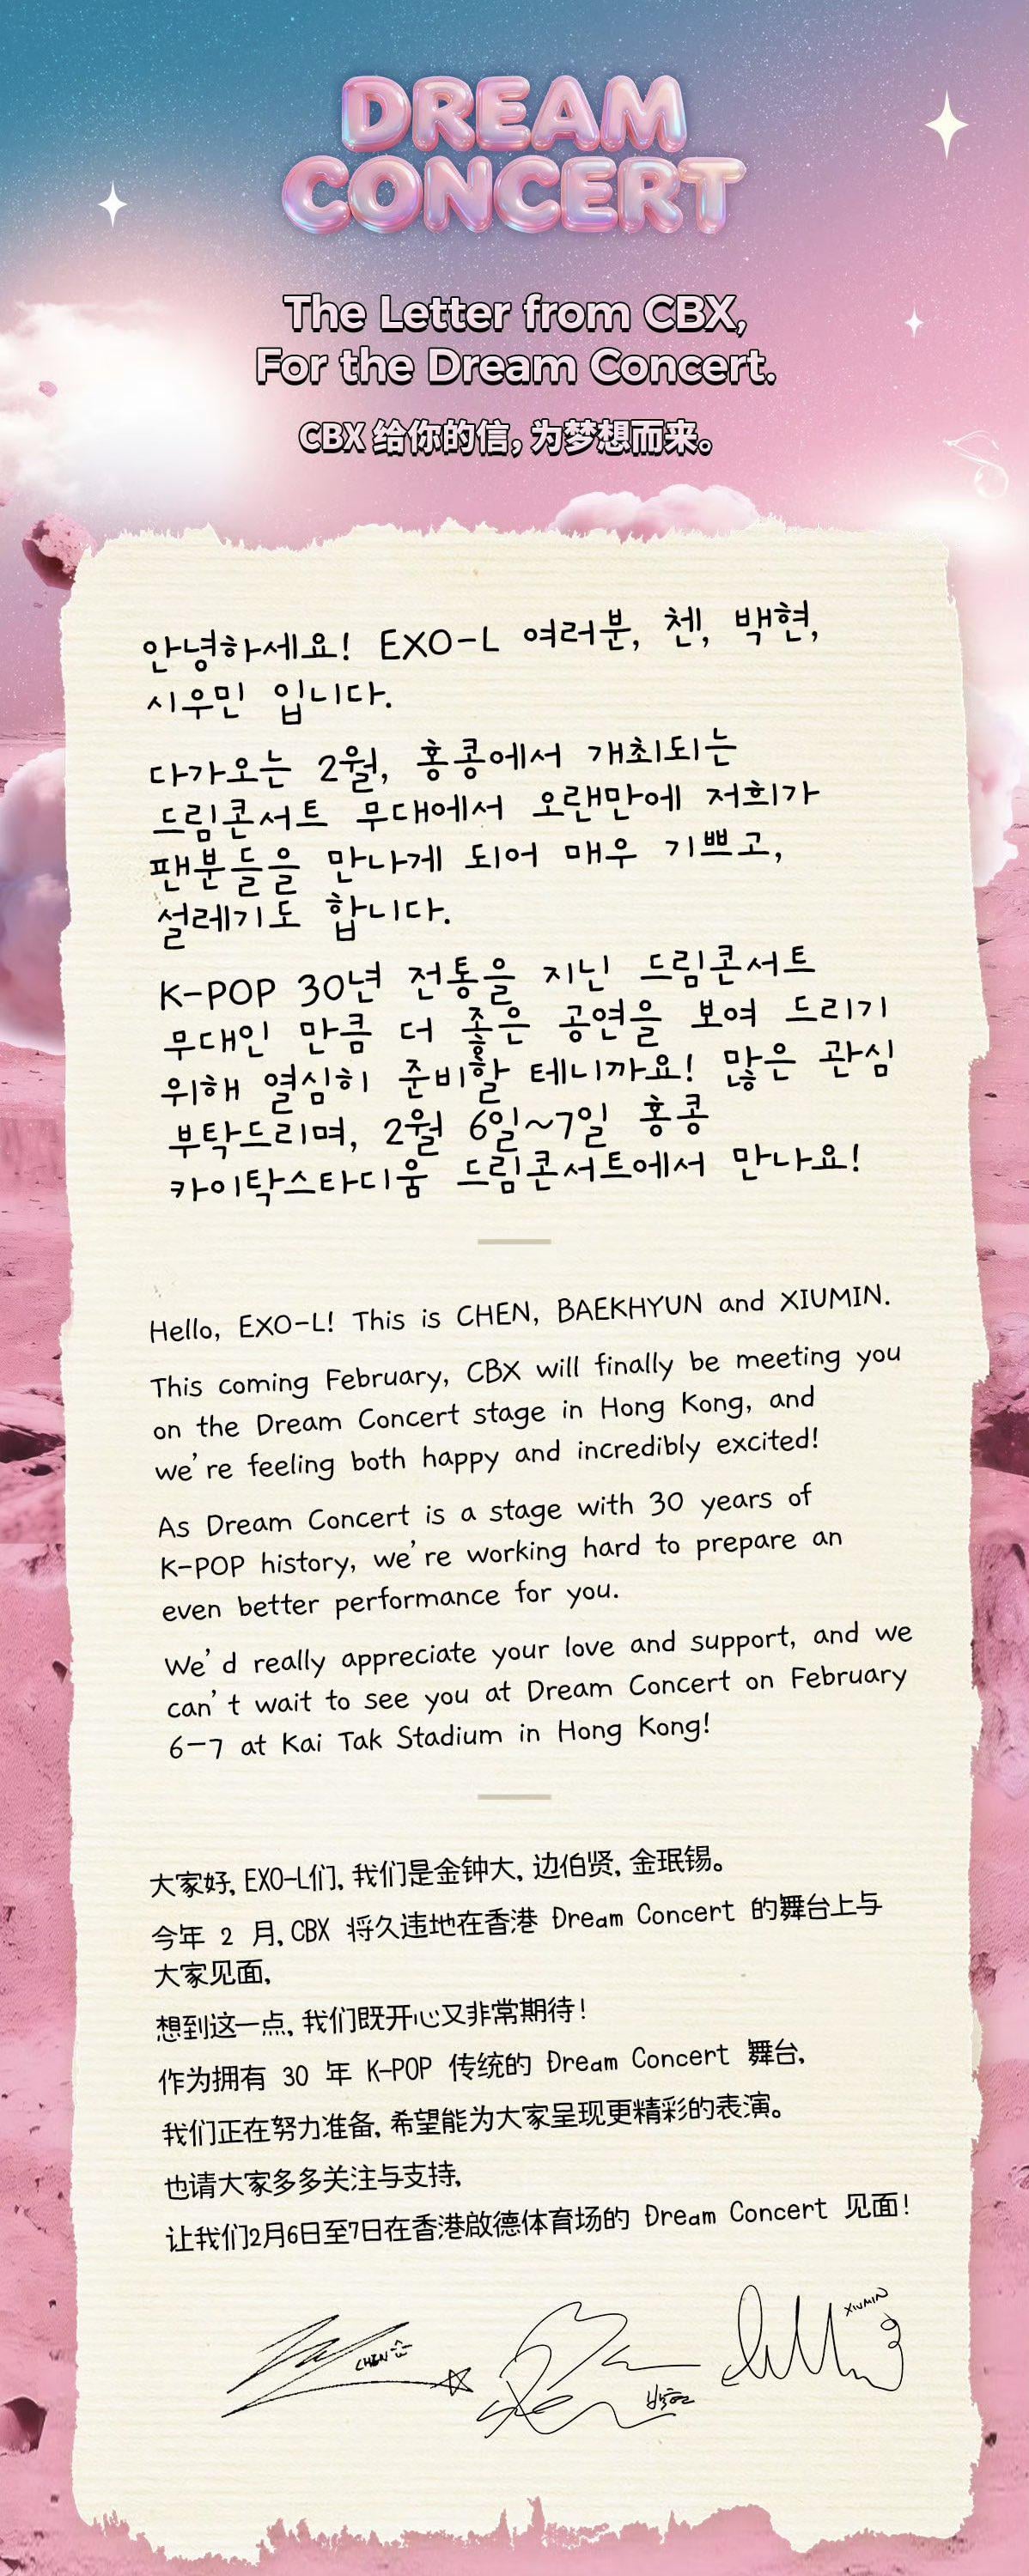 DREAM
CONCERT
The Letter from CBX,
For the Dream Concert.
CBX 给你的信, 为梦想而来。
안녕하세요! EXO-L 여러분, 첸, 백현,
시우민 입니다.
다가오는 2월, 홍콩에서 개최되는
드림콘서트 무대에서 오랜만에 저희가
팬분들을 만나게 되어 매우 기쁘고,
설레기도 합니다.
K-POP 30년 전통을 지닌 드림콘서트
무대인 만큼 더 좋은 공연을 보여 드리기
위해 열심히 준비할 테니까요! 많은 관심
부탁드리며, 2월 6일~7일 홍콩
카이탁스타디움 드림콘서트에서 만나요!
Hello, EXO-L! This is CHEN, BAEKHYUN and XIUMIN.
This coming February, CBX will finally be meeting you
on the Dream Concert stage in Hong Kong, and
we're feeling both happy and incredibly excited!
As Dream Concert is a stage with 30 years of
K-POP history, we're working hard to prepare an
even better performance for you.
We'd really appreciate your love and support, and we
can't wait to see you at Dream Concert on February
6-7 at Kai Tak Stadium in Hong Kong!
大家好, EXO-L们, 我们是金钟大, 边伯贤, 金珉锡。
今年 2 月, CBX 将久违地在香港 Dream Concert 的舞台上与
大家见面,
想到这一点, 我们既开心又非常期待!
作为拥有 30 年 K-POP 传统的 Dream Concert 舞台,
我们正在努力准备, 希望能为大家呈现更精彩的表演。
也请大家多多关注与支持,
让我们2月6日至7日在香港啟德体育场的 Dream Concert 见面!
CHEN
백현
XIUMIN